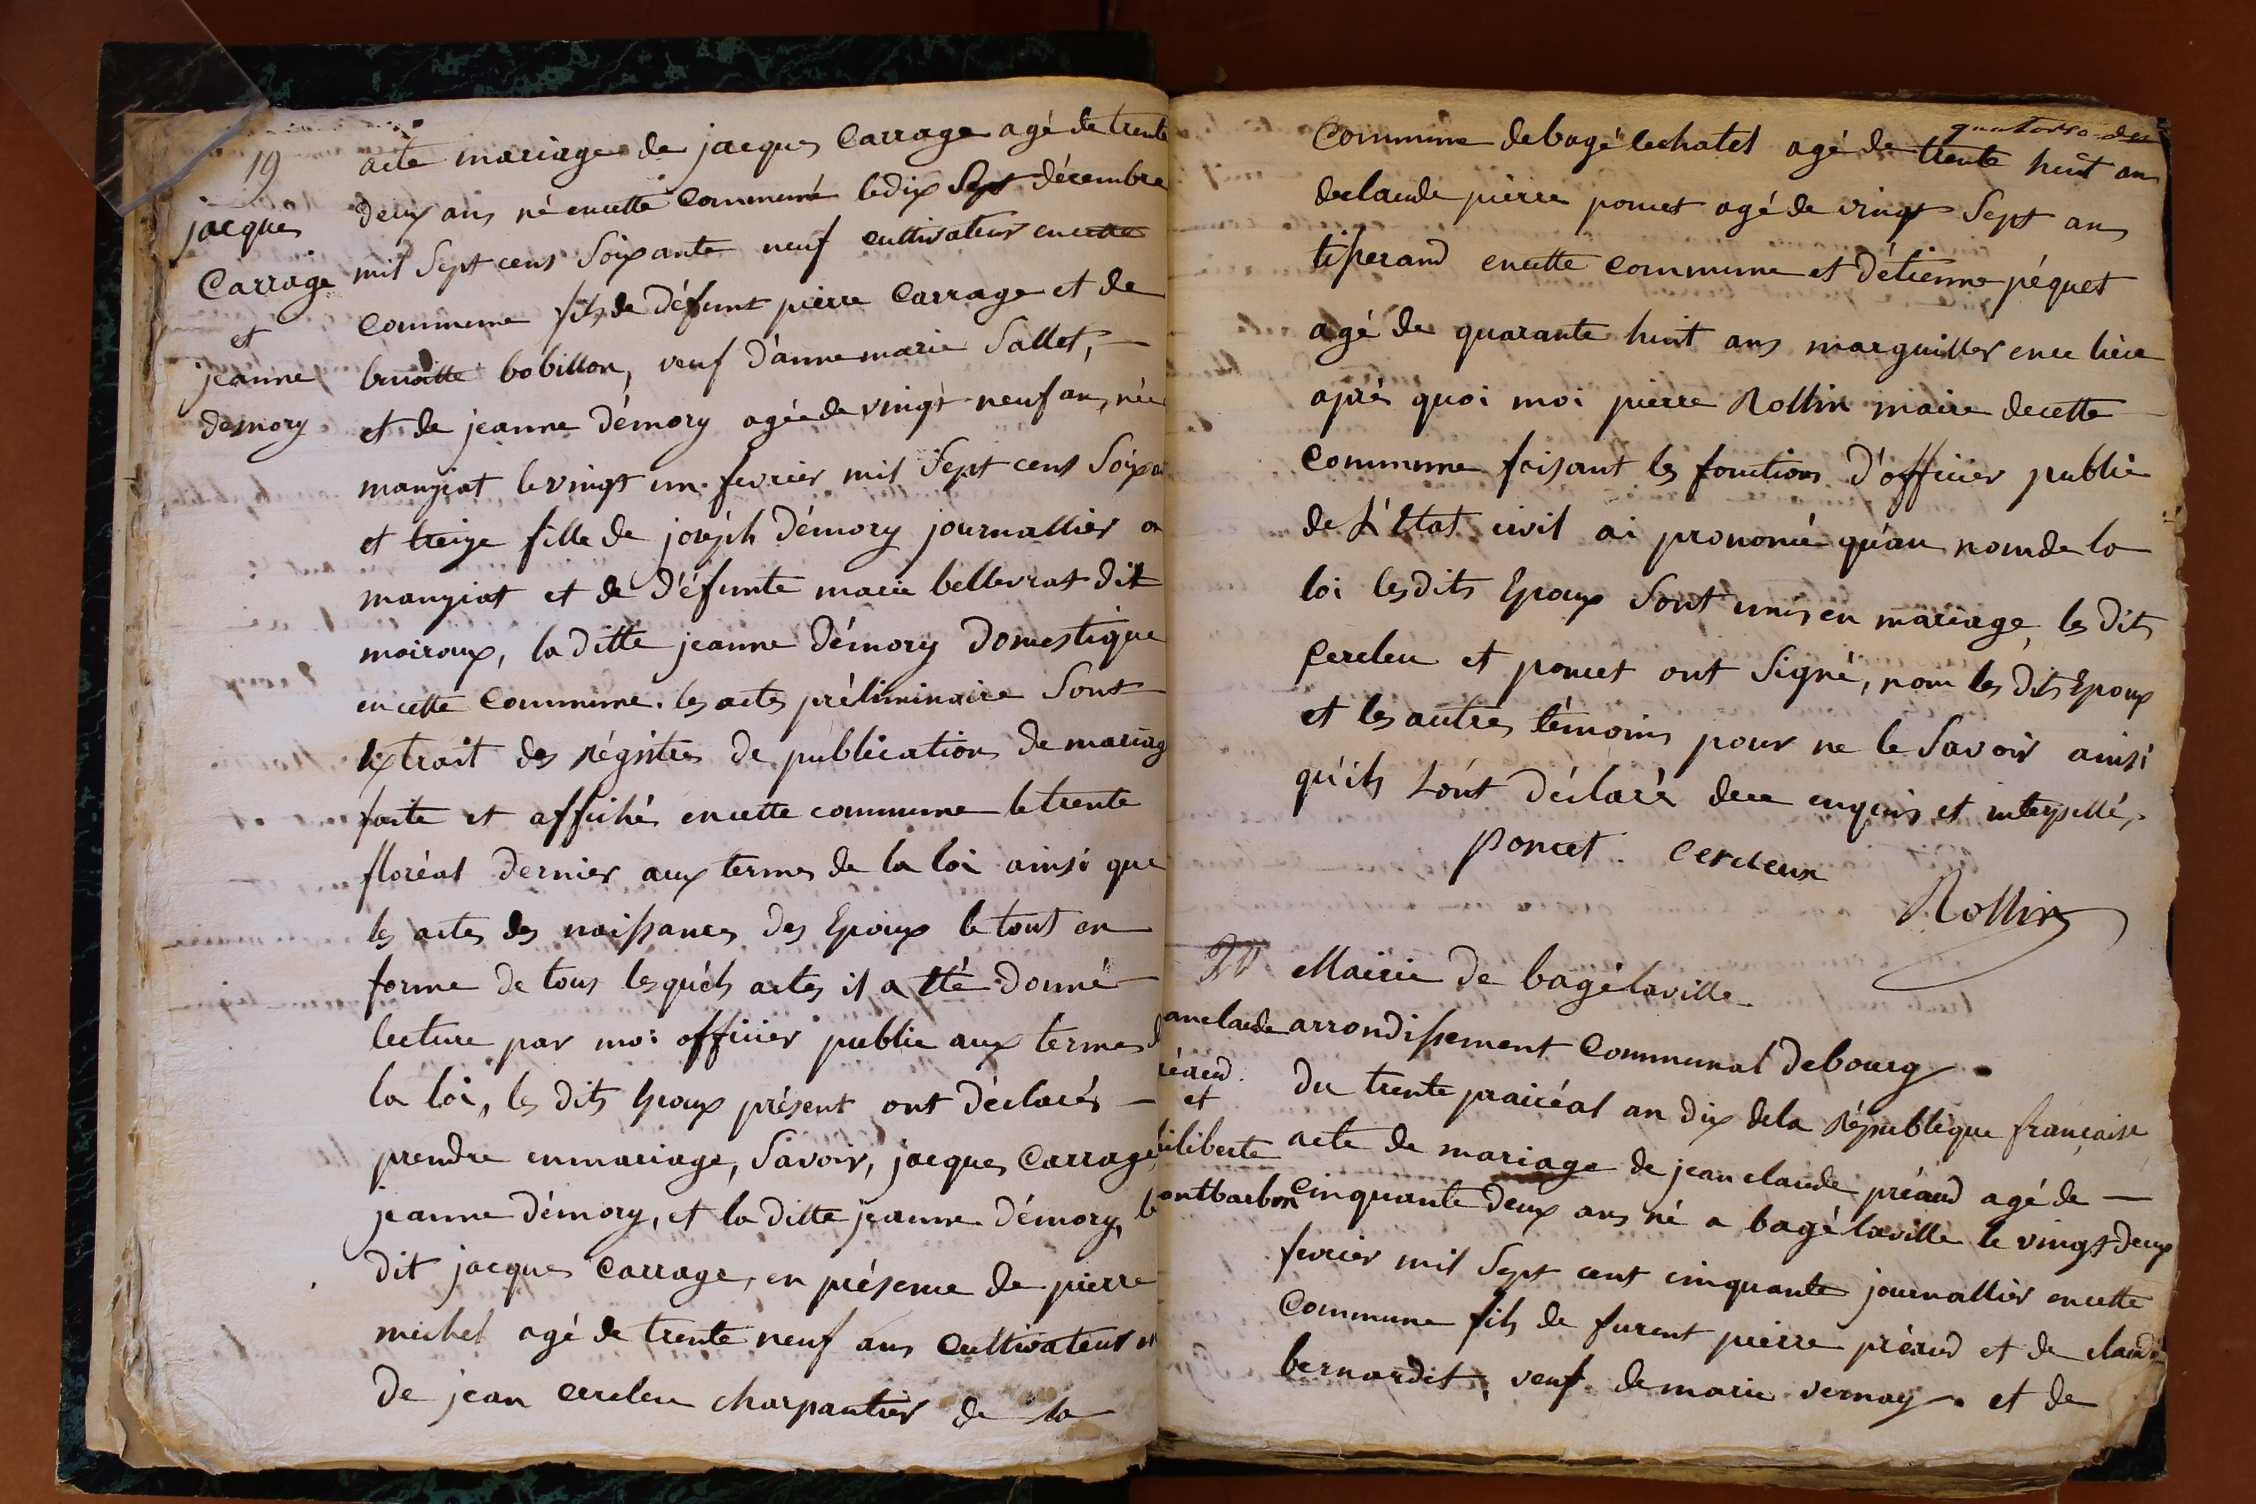 19
jacques
Carrage
et
jeanne
demory
acte mariage de jacques Carrage agé de trente
deux ans né encette Commune ledix Sept décembre
mil Sept cens Soixante neuf cultivateur encette
commune fils de défunt pierre Carrage et de
benoitte bobillon, veuf d'anne marie Sallet,
et de jeanne démory agée de vingt neuf ans, née
manziat le vingt un fevrier mil Sept cens Soixan
et treize fille de joséph démory journallier
manziat et de défunte marie bellevrat dit
moiroux, la ditte jeanne démory domestique
en cette Commune. les actes préliminaire Sont
Extrait des régitres de publications de mariag
faite et affiché encette commune le trente
floréal dernier aux termes de la loi ainsi que
les actes des naissances des Epoux le tout en
forme de tous lesquéls actes il a Eté donné
lecture par moi officier public aux termes d
la loi, les dits Epoux présent ont déclarés
prendre enmariage, Savoir, jacques Carrage,
jeanne démory, et la ditte jeanne démory, le
dit jacques Carrage, en présence de pierre
michel agé de trente neuf ans Cultivateur
de jean cercleu charpantier de la
quatorse des
Commune debagé lechatel agé de trente huit ans
declaude pierre poncet agé de vingt Sept ans
tisserand encette commune et détienne péquet
agé de quarante huit ans marguiller ence lieu
après quoi moi pierre Rollin maire decette
Commune faisant les fonctions d'officier public
de L'Etat civil ai prononcé qu'au nom de la
loi lesdits Epoux Sont unis en mariage, les dits
Cercleu et poncet ont Signé, non les dits Epoux
et les autres témoins pour ne le Savoir ainsi
qu'ils L'ont déclarés dece enquis et interpellé,
poncet. cercleux
Rollin
20
anclaude
réaud.
et
iliberte
ontbarbon
Mairie de bagélaville
arrondissement Communal debourg
du trente prairéal an dix dela République française
acte de mariage de jean claude préaud agé de
cinquante deux ans né a bagé laville le vingt deux
fevrier mil Sept cent cinquante journallier encette
Commune fils de furent pierre préaud et de claud
bernardet, veuf de marie vernay. et de